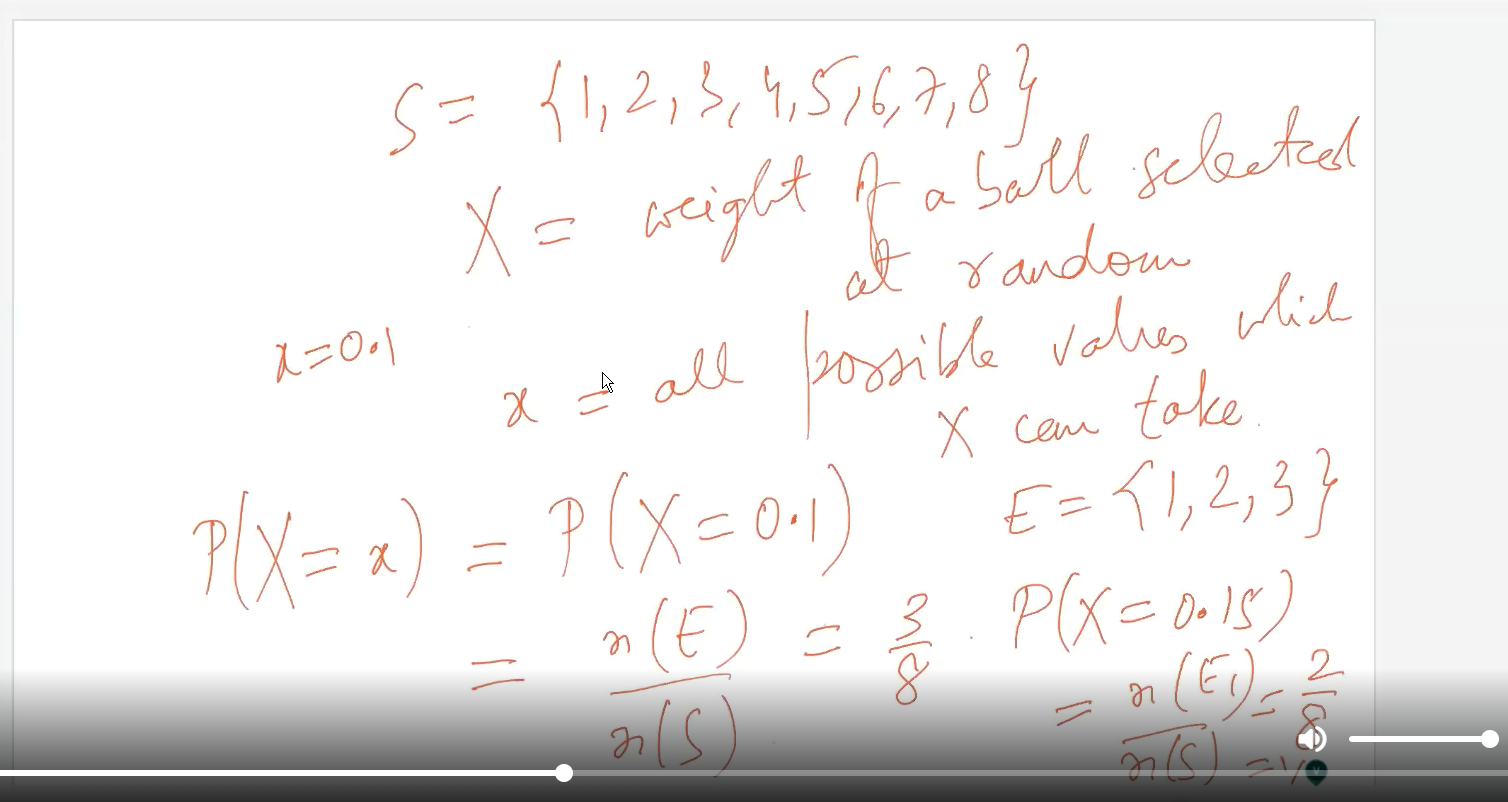 S = {1, 2, 3, 4, 5, 6, 7, 8}
X = weight of a ball selected
at random
x = 0.1
x = all possible values which
X can take.
P(X = x) = P(X = 0.1)
E = {1, 2, 3}
= n(E)/n(S) = 3/8.
P(X = 0.15)
= n(E1)/n(S) = 2/8